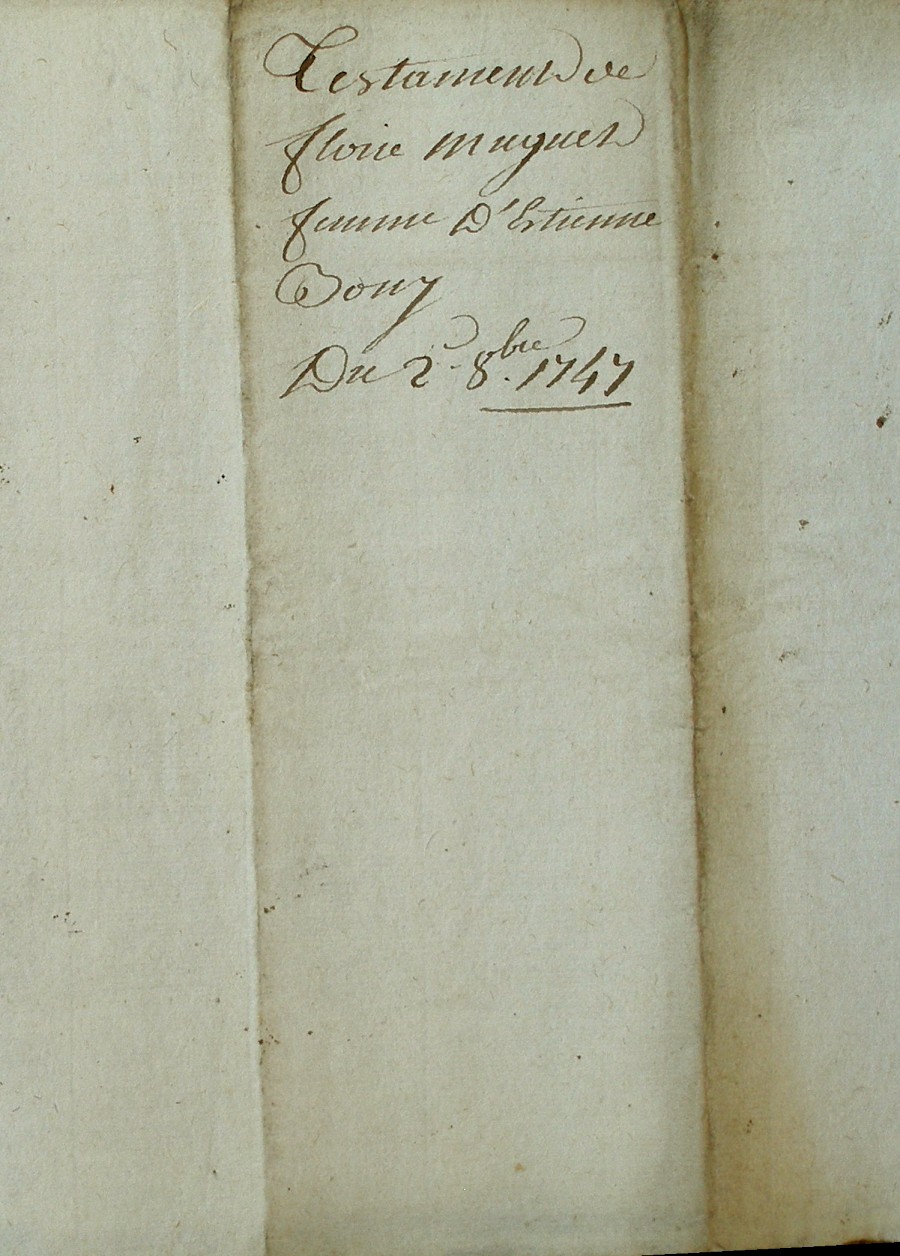 Testament de
florie muguet
femme D'Estienne
Bouy
Du 2e. 8bre. 1747